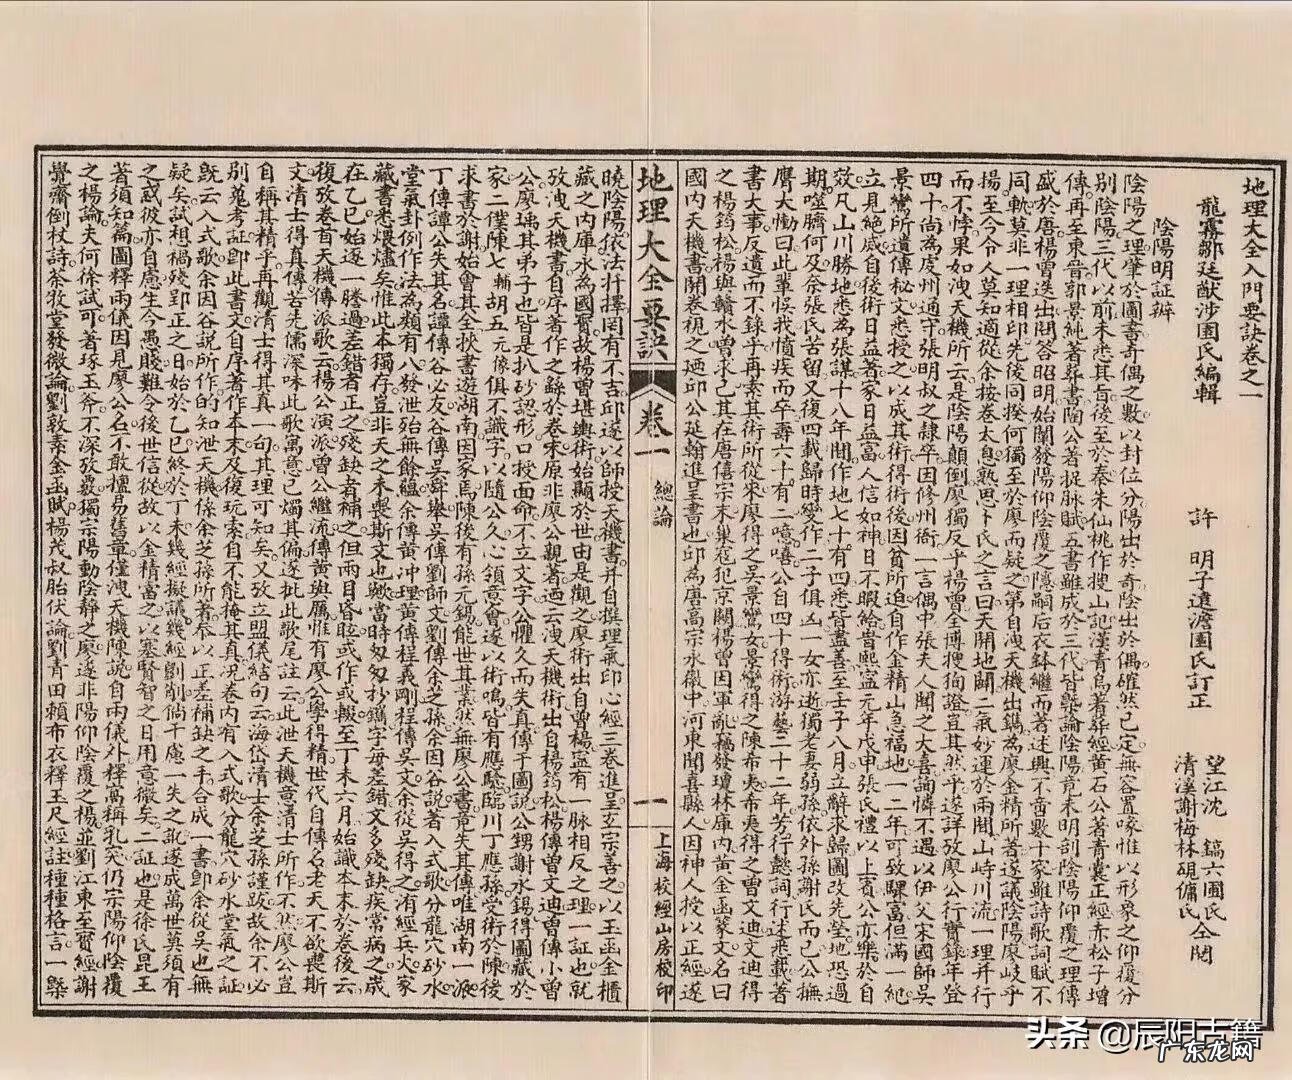 地理大全入門要訣卷之一
龍霧鄒廷猷涉園氏編輯
許明子遠澹園氏訂正
望江沈鎬六圃氏
清溪謝梅林硯傭氏仝閱
陰陽明証辨
陰陽之理肇於圖書奇偶之數以卦位分陽出於奇陰出於偶確然已定無容置喙惟以形象之仰覆分
別陰陽三代以前未悉其旨後至於秦朱仙桃作搜山記漢青烏著葬經黃石公著青囊正經赤松子增
傳再至東晉郭景純著葬書陶公著捉脉賦五書雖成於三代皆槩論陰陽竟未明剖陰陽仰覆之理傳
盛於唐楊曾迭出問答昭明始闡發陽仰陰覆之隱嗣后衣鉢繼而著述興不啻數十家雖詩歌詞賦不
同軌莫非一理相印先後同揆何獨至於廖而疑之第自洩天機出鐫為廖金精所著遂議陰陽廖岐乎
揚至今令人莫知適從余按卷太息熟思卜氏之言曰天開地闢二氣妙運於兩間山峙川流一理并行
而不悖果如洩天機所云是陰陽顛倒廖獨反乎楊曾全博搜狥證豈其然乎遂詳攷廖公行實錄年登
四十尚為虔州通守張明叔之隸卒因修州衙一言偶中張夫人聞之大喜誦憐不遇以伊父宋國師吳
景鸞所遺傳秘文悉授之以成其術得術後因貧所迫自作金精山急福地一二年可致騾富但滿一紀
立見絕滅自後術日益著家日益富人信如神日不暇給當熙寧元年戊申張氏禮以上賓公亦樂於自
效凡山川勝地悉為張謀十八年間作地七十有四悉皆盡善至壬子八月立辭求歸圖改先塋地恐過
期噬臍何及奈張氏苦留又復四載歸時變作二子俱凶一女亦逝獨老妻弱孫依外孫謝氏而已公撫
膺大慟曰此輩悞我憤疾而卒壽六十有二噫嘻公自四十得術游藝二十二年芳行懿詞行述悉載著
書大事反遺而不錄乎再素其術所從宋廖得之吳景鸞女景鸞得之陳希夷希夷得之曾文迪文迪得
之楊筠松楊與贛水曾求己其在唐僖宗末巢寇犯京闕楊曾因軍亂竊發瓊林庫內黃金函篆文名曰
國內天機書開卷視之廼邱公延翰進呈書也邱為唐高宗永徽中河東聞喜縣人因神人授以正經遂
地理大全要訣 卷一 總論 一 上海校經山房校印
曉陰陽依法扦擇罔有不吉邱遂以師授天機書并自撰理氣印心經三卷進呈玄宗善之以玉函金櫃
藏之內庫永為國寶故楊曾堪輿術始顯於世由是觀之廖術出自曾楊寧有一脉相反之理一証也就
攷洩天機書自序著作之餘於卷末原非廖公親著迺云洩天機術出自楊筠松楊傳曾文迪曾傳小曾
公廖瑀其弟子也皆是扒砂認形口授面命不立文字公懼久而失真傳于圖說公甥謝永錫得圖藏於
家二僕陳七輔胡五元像俱不識字以隨公久心領意會遂以術鳴皆有應驗臨川丁應孫受術於陳後
求書於謝始會其全挾書遊湖南因家焉陳後有孫元錫能世其業然無廖公書竟失其傳唯湖南一派
丁傳譚公失其名譚傳谷必友谷傳吳舜舉吳傳劉師文劉傳余芝孫余因谷說著入式歌分龍穴砂水
堂氣卦例作法為類有八發泄殆無餘蘊余傳黃冲理黃傳程義剛程傳吳文余從吳得之洧經兵火家
藏書悉煨燼矣惟此本獨存豈非天之未喪斯文也歟當時匆匆抄鐫字每差錯文多殘缺疾常病之歲
在乙巳始逐一謄過差錯者正之殘缺者補之但兩目昏眩或作或輟至丁未六月始識本末於卷後云
復攷卷首天機傳派歌云楊公演派曾公繼流傳黃與厲惟有廖公學得精世代自傳名老天不欲喪斯
文清士得真傳苦先儒深味此歌寓意已燭其偏逐批此歌尾註云此泄天機竟清士所作不然廖公豈
自稱其精乎再觀清士得其真一句其理可知矣又攷立盟儀結句云海岱清士余芝孫謹跋故余不必
別蒐考証即此書文自序著作本末及復玩索自不能掩其真况卷內有入式歌分龍穴砂水堂氣之証
既云入式歌余因谷說所作的知泄天機係余芝孫所著奉以正差補缺之手合成一書即余從吳也無
疑矣試想禍殘到正之日始於乙巳終於丁未幾經擬議幾經剞劂倘千慮一失之訛遂成萬世莫須有
之惑彼亦自慮生今愚賤難令後世信從故以金精寓之以摹賢智之日用意微矣二証也是徐氏昆玉
著須知篇圖釋兩儀因見廖公名不敢擅易舊章僅洩天機陳說自兩儀外釋窩稱乳突仍宗陽仰陰覆
之楊論夫何徐試可著琢玉斧不深攷覈獨宗陽動陰靜之廖遂非陽仰陰覆之楊並劉江東至寶經謝
覺齋倒杖詩茶牧堂發微論劉敦素金函賦楊茂叔胎伏論劉青田賴布衣釋玉尺經註種種格言一槩
头条 @辰阳古籍
广东龙网